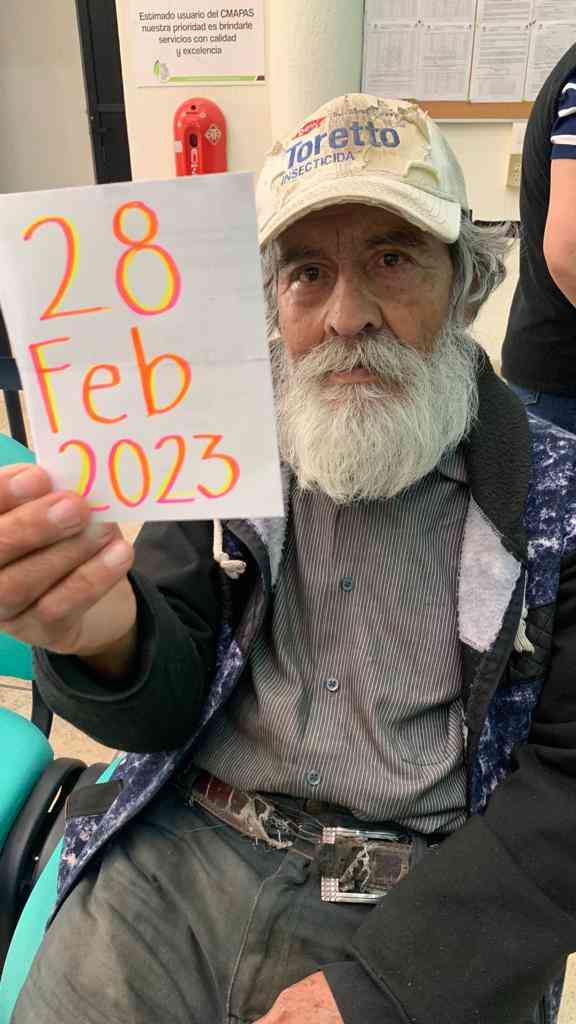 Estimado usuario del CMAPAS
nuestra prioridad es brindarle
servicios con calidad
y excelencia
Toretto
INSECTICIDA
28
Feb
2023